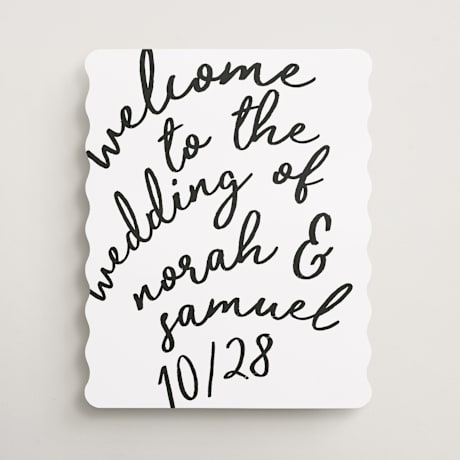 welcome
to the
wedding of
norah &
samuel
10/28